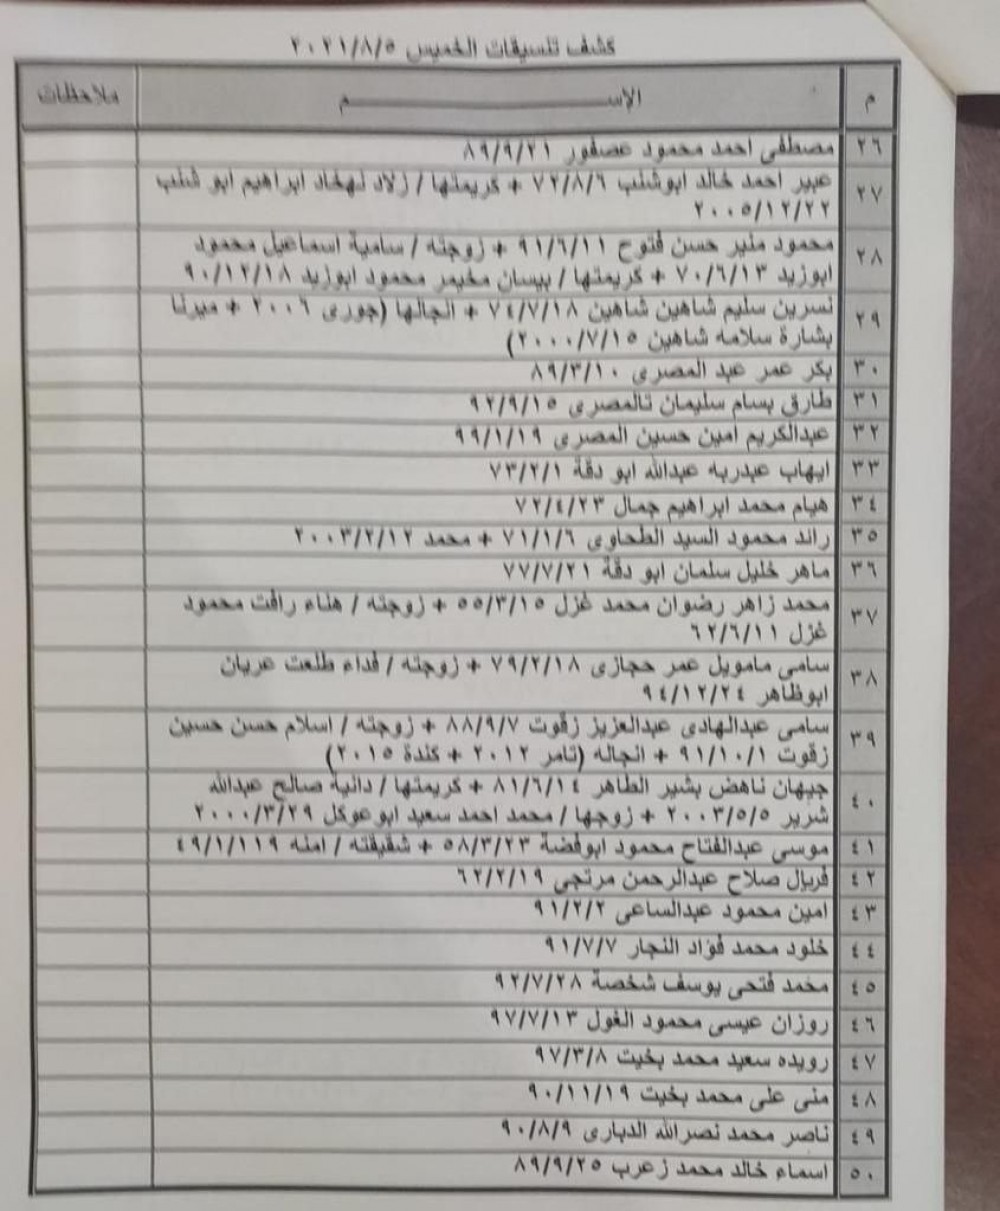 كشف تنسيقات الخميس ٢٠٢١/٨/٥
م الإســـــــــم ملاحظات
٢٦ مصطفى احمد محمود عصفور ٨٩/٩/٢١
٢٧ عبير احمد خالد ابوشنب ٧٢/٨/٦ + كريمتها / زلاد نهضاد ابراهيم ابو شنب
٢٠٠٥/١٢/٢٢
٢٨ محمود منير حسن فتوح ٩١/٦/١١ + زوجته / سامية اسماعيل محمود
ابوزيد ٧٠/٦/١٣ + كريمتها / بيسان مخيمر محمود ابوزيد ٩٠/١٢/١٨
٢٩ نسرين سليم شاهين شاهين ٧٤/٧/١٨ + انجالها (جورى ٢٠٠٦ + ميرنا
بشارة سلامه شاهين ٢٠٠٠/٧/١٥)
٣٠ بكر عمر عبد المصرى ٨٩/٣/١٠
٣١ طارق بسام سليمان تالمصرى ٩٢/٩/١٥
٣٢ عبدالكريم امين حسين المصرى ٩٩/١/١٩
٣٣ ايهاب عبدربه عبدالله ابو دقة ٧٣/٢/١
٣٤ هيام محمد ابراهيم جمال ٧٢/٤/٢٣
٣٥ رائد محمود السيد الطحاوى ٧١/١/٦ + محمد ٢٠٠٣/٢/١٢
٣٦ ماهر خليل سلمان ابو دقة ٧٧/٧/٢١
٣٧ محمد زاهر رضوان محمد غزل ٥٥/٣/١٥ + زوجته / هناء رافت محمود
غزل ٦٢/٦/١١
٣٨ سامى مامويل عمر حجازى ٧٩/٢/١٨ + زوجته / فداء طلعت عريان
ابوظاهر ٩٤/١٢/٢٤
٣٩ سامى عبدالهادى عبدالعزيز زقوت ٨٨/٩/٧ + زوجته / اسلام حسن حسين
زقوت ٩١/١٠/١ + انجاله (تامر ٢٠١٢ + كندة ٢٠١٥)
٤٠ جيهان ناهض بشير الطاهر ٨١/٦/١٤ + كريمتها / دانية صالح عبدالله
شرير ٢٠٠٣/٥/٥ + زوجها / محمد احمد سعيد ابوعوكل ٢٠٠٠/٣/٢٩
٤١ موسى عبدالفتاح محمود ابوفضة ٥٨/٣/٢٣ + شقيقته / امنه ٤٩/١/١١٩
٤٢ فريال صلاح عبدالرحمن مرتجى ٦٢/٢/١٩
٤٣ امين محمود عبدالساعى ٩١/٢/٢
٤٤ خلود محمد فؤاد النجار ٩١/٧/٧
٤٥ محمد فتحى يوسف شخصة ٩٢/٧/٢٨
٤٦ روزان عيسى محمود الغول ٩٧/٧/١٣
٤٧ رويده سعيد محمد بخيت ٩٧/٣/٨
٤٨ منى على محمد بخيت ٩٠/١١/١٩
٤٩ ناصر محمد نصرالله الدبارى ٩٠/٨/٩
٥٠ اسماء خالد محمد زعرب ٨٩/٩/٢٥